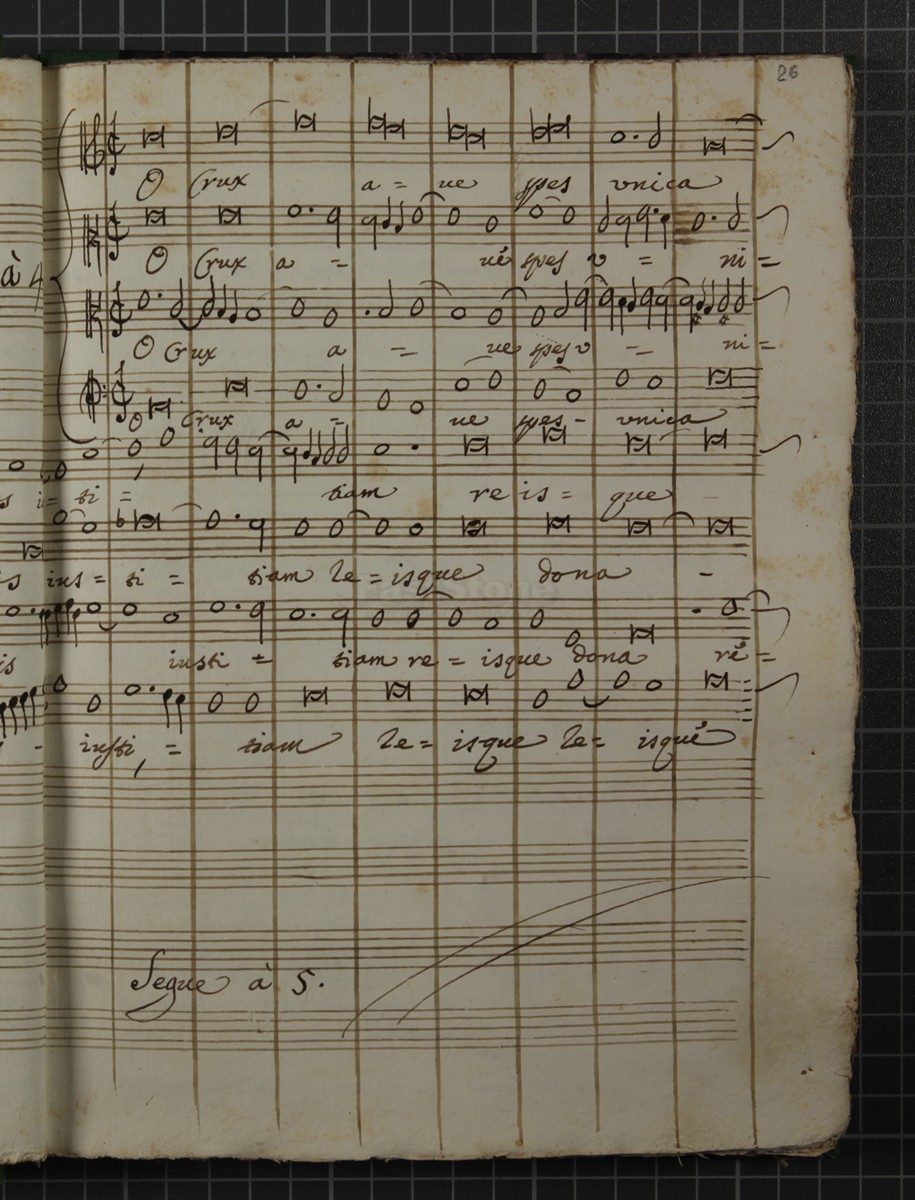 26
O Crux a = ue spes vnica
O Crux a = ué spes v = ni =
à 4
O Crux a = ue spes v = ni =
O Crux a = ue spes - vnica
s i = ti = tiam re is = que
is ius = ti = tiam le = isque dona -
is iusti = tiam re = isque dona ré =
- iusti, = tiam le = isque le = isqué
Segue à 5.